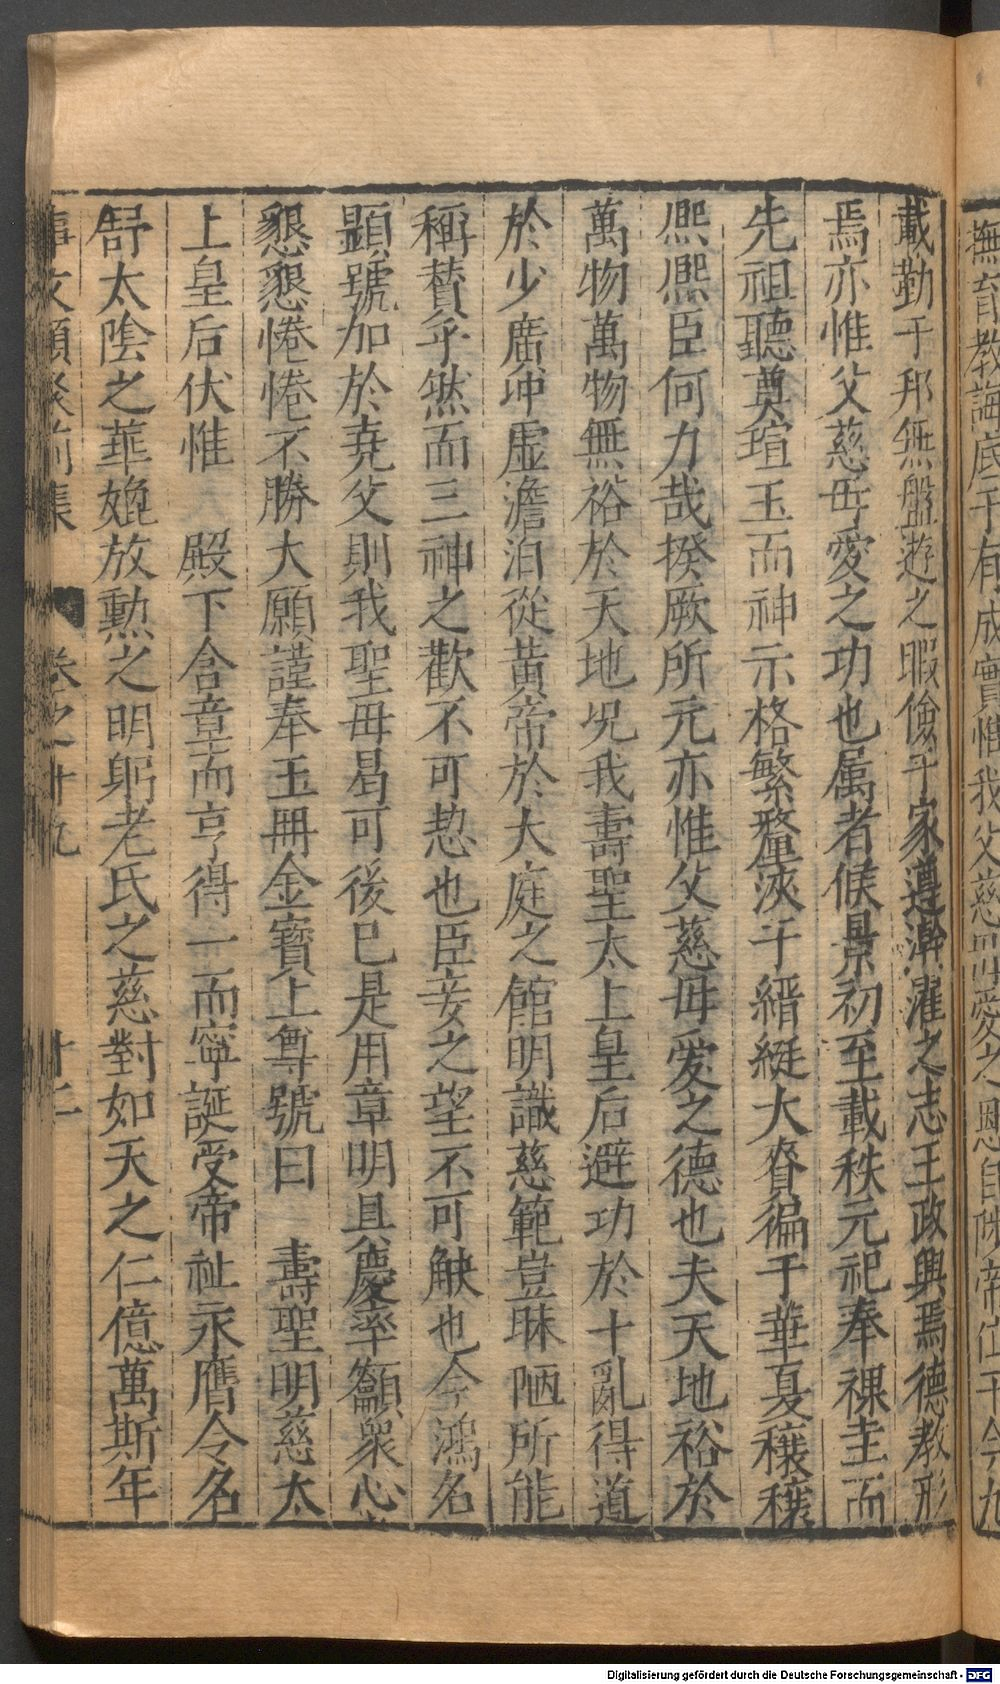 載勤于邦無盤遊之暇儉于家遵澣濯之志王政興焉德教形
焉亦惟父慈毋愛之功也属者候景初至載秩元祀奉祼圭而
先祖聽奠瑄玉而神示格繁釐浹于縉綎大賚徧于華夏穰穰
熈熈臣何力哉揆厥所元亦惟父慈毋爱之德也夫天地裕於
萬物萬物無裕於天地况我壽聖太上皇后避功於十亂得道
於少廣冲虛澹泊從黃帝於大庭之館明識慈範豈昧陋所能
稱賛乎然而三神之歡不可恝也臣妾之望不可觖也今鴻名
顯號加於尭父則我聖毋曷可後巳是用章明具慶率籲衆心
懇懇惓惓不勝大願謹奉玉冊金寳上尊號曰 壽聖明慈太
上皇后伏惟 殿下含章而亨得一而寧誕受帝祉永膺令名
舒太陰之華媲放勲之明躬老氏之慈對如天之仁億萬斯年
事文類聚前集 卷之十九
教誨底于有成實惟我父慈毋愛之恩自陟帝位于今九
Digitalisierung gefördert durch die Deutsche Forschungsgemeinschaft - DFG